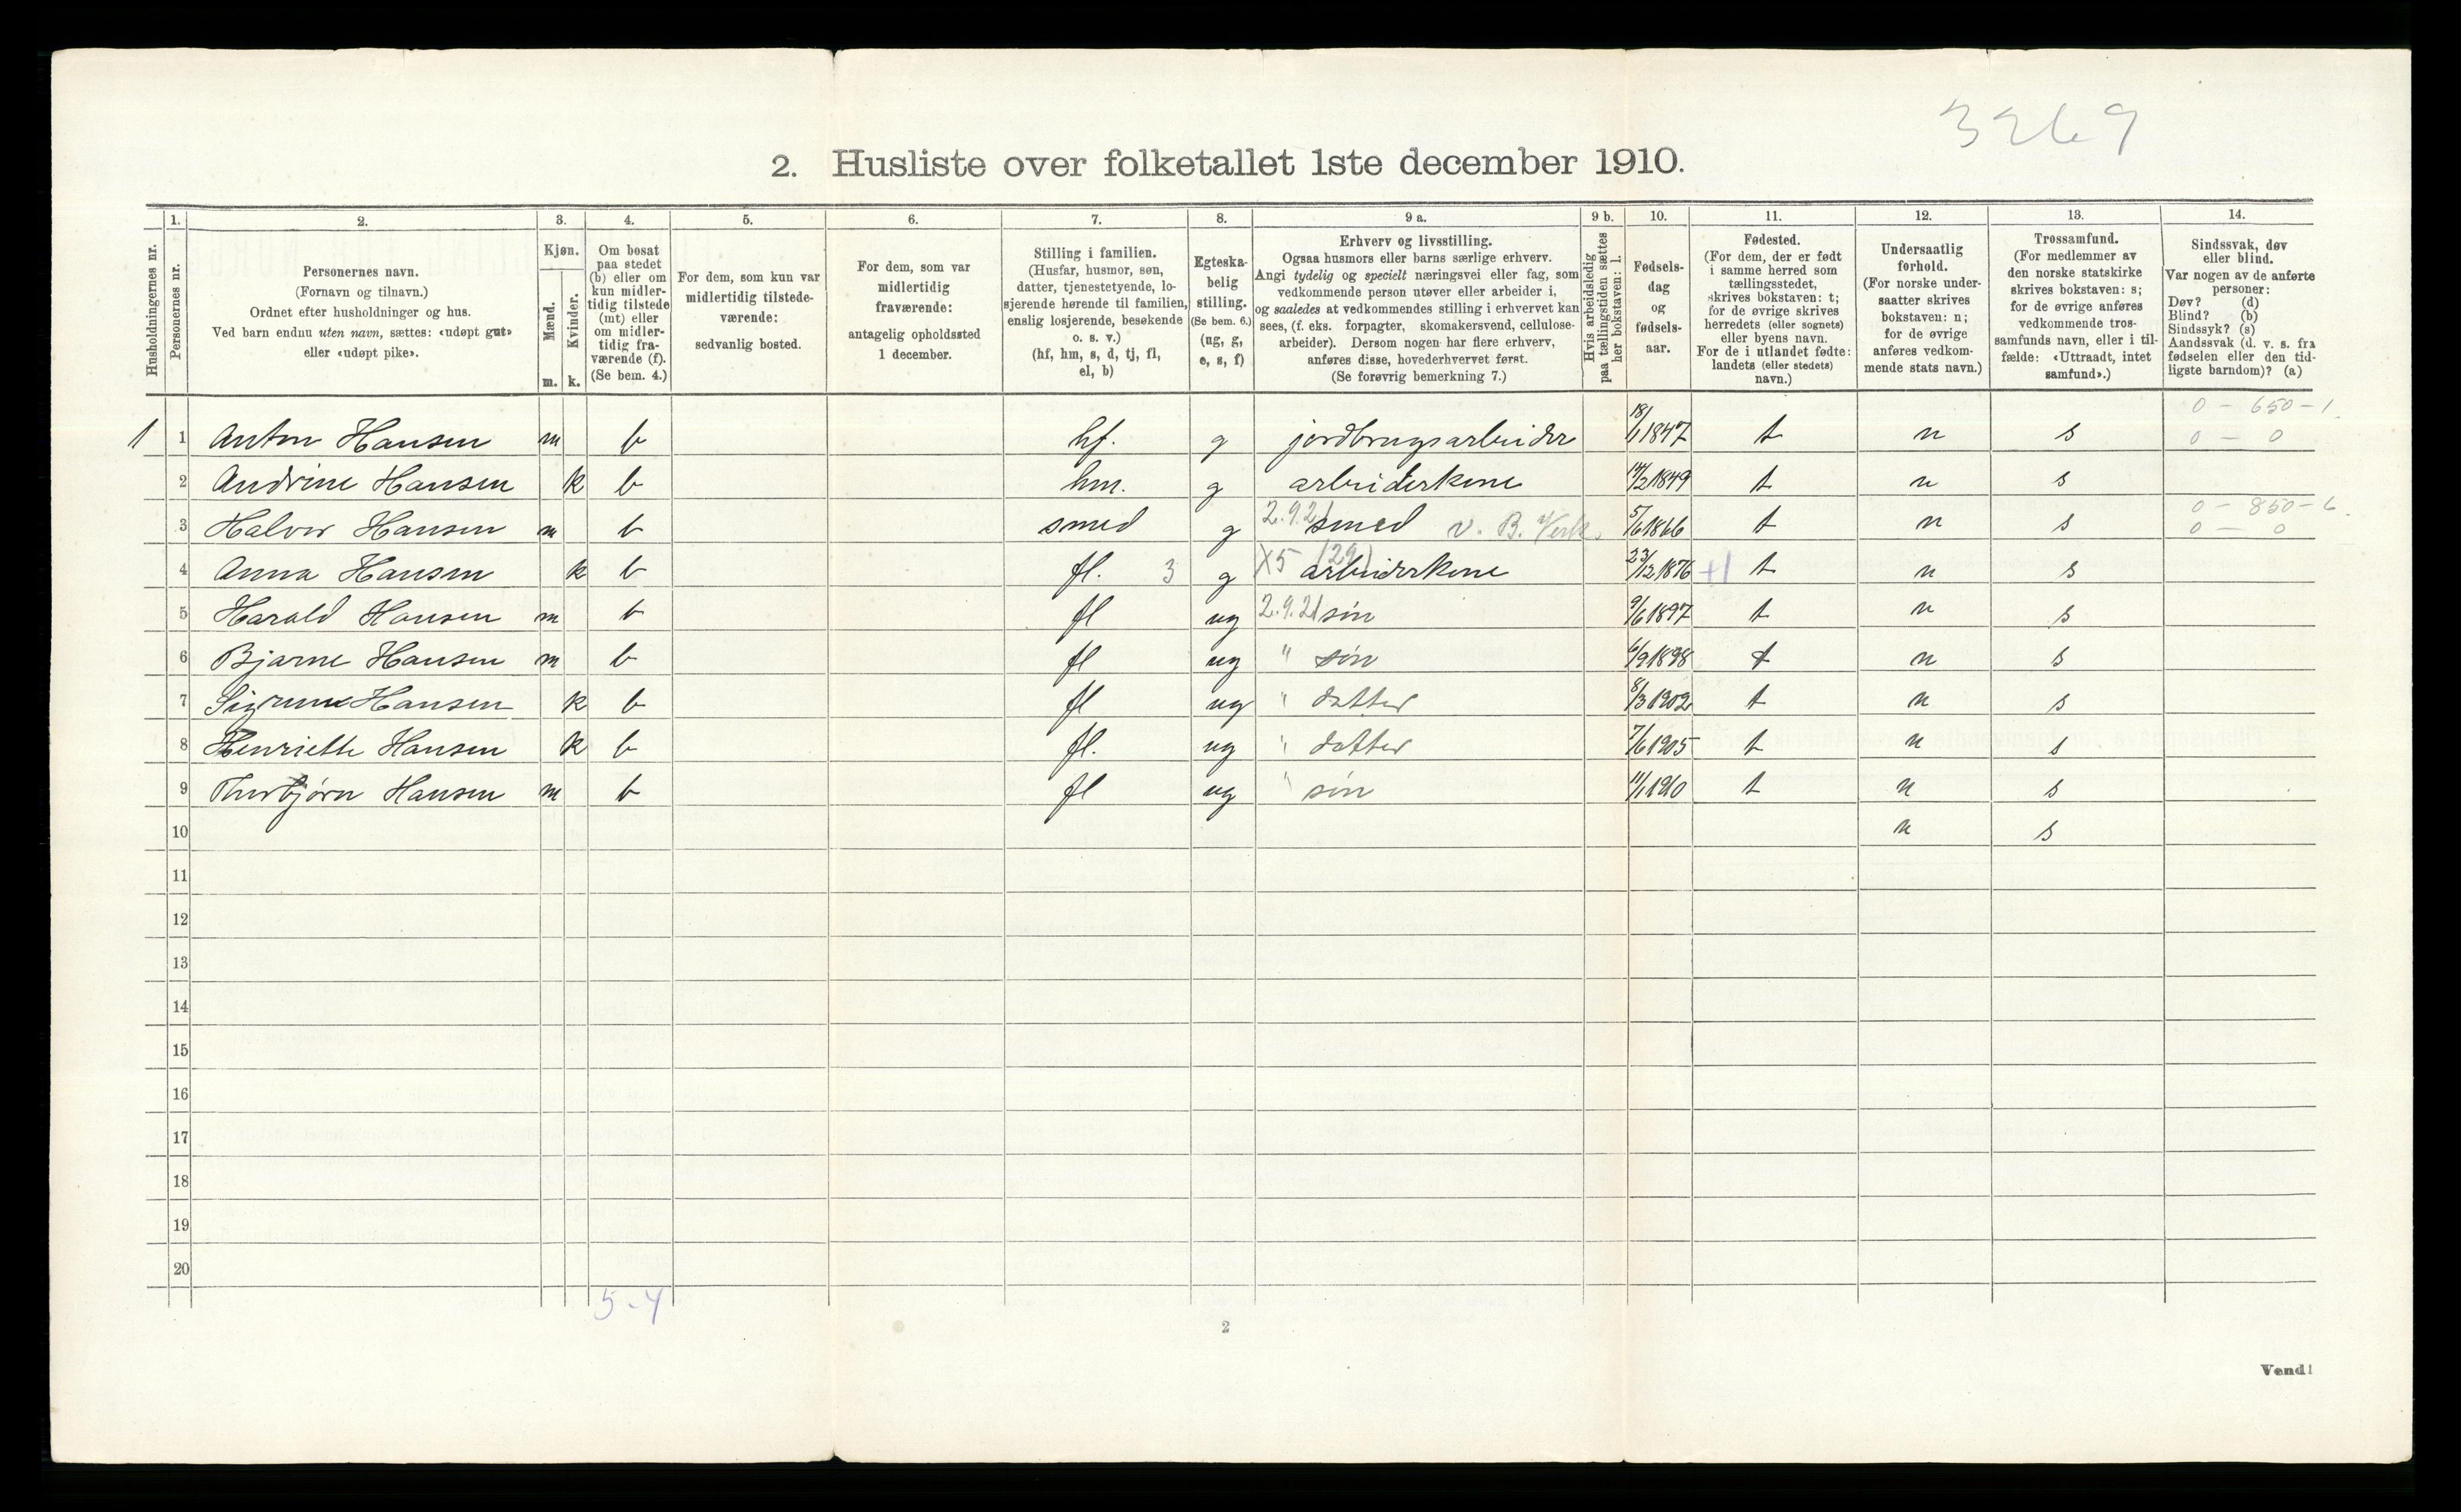 3269
2. Husliste over folketallet 1ste december 1910.
Husholdningernes nr.
1.
Personernes nr.
2.
Personernes navn.
(Fornavn og tilnavn.)
Ordnet efter husholdninger og hus.
Ved barn endnu uten navn, sættes: «udøpt gut»
eller «udøpt pike».
3.
Kjøn.
Mænd.
m.
Kvinder.
k.
4.
Om bosat
paa stedet
(b) eller om
kun midler-
tidig tilstede
(mt) eller
om midler-
tidig fra-
værende (f).
(Se bem. 4.)
5.
For dem, som kun var
midlertidig tilstede-
værende:
sedvanlig bosted.
6.
For dem, som var
midlertidig
fraværende:
antagelig opholdssted
1 december.
7.
Stilling i familien.
(Husfar, husmor, søn,
datter, tjenestetyende, lo-
sjerende hørende til familien,
enslig losjerende, besøkende
o. s. v.)
(hf, hm, s, d, tj, fl,
el, b)
8.
Egteska-
belig
stilling.
(Se bem. 6.)
(ug, g,
e, s, f)
9 a.
Erhverv og livsstilling.
Ogsaa husmors eller barns særlige erhverv.
Angi tydelig og specielt næringsvei eller fag, som
vedkommende person utøver eller arbeider i,
og saaledes at vedkommendes stilling i erhvervet kan
sees, (f. eks. forpagter, skomakersvend, cellulose-
arbeider). Dersom nogen har flere erhverv,
anføres disse, hovederhvervet først.
(Se forøvrig bemerkning 7.)
9 b.
Hvis arbeidsledig
paa tællingstiden sættes
her bokstaven: l.
10.
Fødsels-
dag
og
fødsels-
aar.
11.
Fødested.
(For dem, der er født
i samme herred som
tællingsstedet,
skrives bokstaven: t;
for de øvrige skrives
herredets (eller sognets)
eller byens navn.
For de i utlandet fødte:
landets (eller stedets)
navn.)
12.
Undersaatlig
forhold.
(For norske under-
saatter skrives
bokstaven: n;
for de øvrige
anføres vedkom-
mende stats navn.)
13.
Trossamfund.
(For medlemmer av
den norske statskirke
skrives bokstaven: s;
for de øvrige anføres
vedkommende tros-
samfunds navn, eller i til-
fælde: «Uttraadt, intet
samfund».)
14.
Sindssvak, døv
eller blind.
Var nogen av de anførte
personer:
Døv? (d)
Blind? (b)
Sindssyk? (s)
Aandssvak (d. v. s. fra
fødselen eller den tid-
ligste barndom)? (a)
1 1 Anton Hansen m b hf. g jordbrugsarbeider 18/1 1847 t n s 0 - 650 - 1. 0 - 0
2 Andrine Hansen k b hm. g arbeiderkone 14/2 1849 t n s
3 Halvor Hansen m b smed g 2.9.21 smed v. B. Verk. 5/6 1866 t n s 0 - 850 - 6. 0 - 0
4 Anna Hansen k b fl. 3 g X5 (29) arbeiderkone 23/12 1876 +1 t n s
5 Harald Hansen m b fl ug 2.9.21 søn 9/6 1897 t n s
6 Bjarne Hansen m b fl ug " søn 6/9 1898 t n s
7 Sigrune Hansen k b fl ug " datter 8/3 1902 t n s
8 Henriette Hansen k b fl. ug " datter 7/6 1905 t n s
9 Thorbjørn Hansen m b fl ug " søn 11/1 1910 t n s
10 n s
11
12
13
14
15
16
17
18
19
20
5-4
2
Vend!